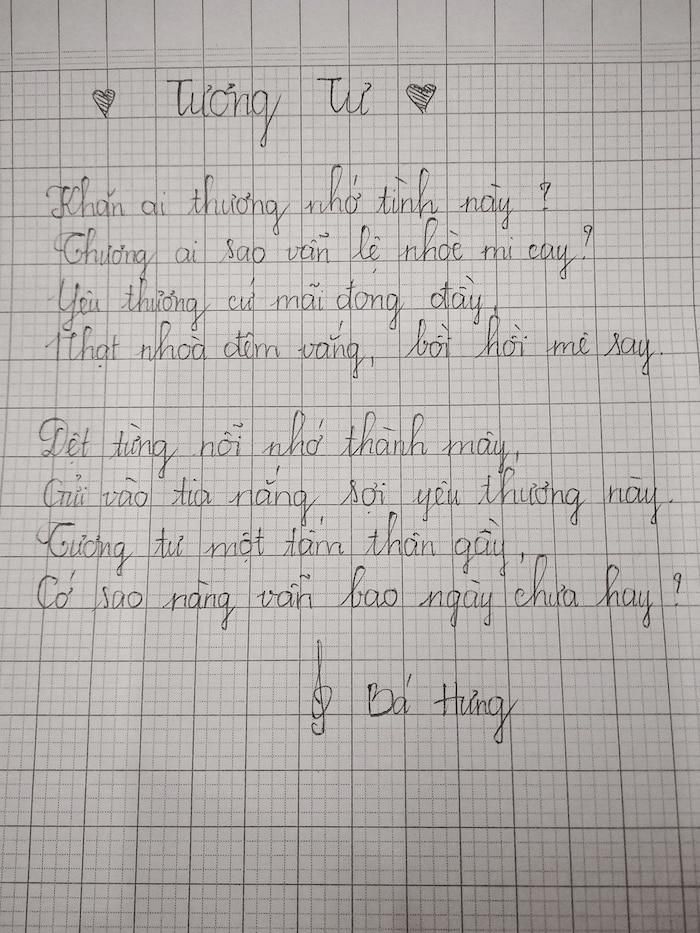 Tương Tư
Khăn ai thương nhớ tình này ?
Thương ai sao vẫn lệ nhoè mi cay ?
Yêu thương cứ mãi đong đầy,
Nhạt nhoà đêm vắng, bồi hồi mê say.
Dệt từng nỗi nhớ thành mây,
Gửi vào tia nắng sợi yêu thương này.
Tương tư một tấm thân gầy,
Cớ sao nàng vẫn bao ngày chưa hay ?
Bá Hưng